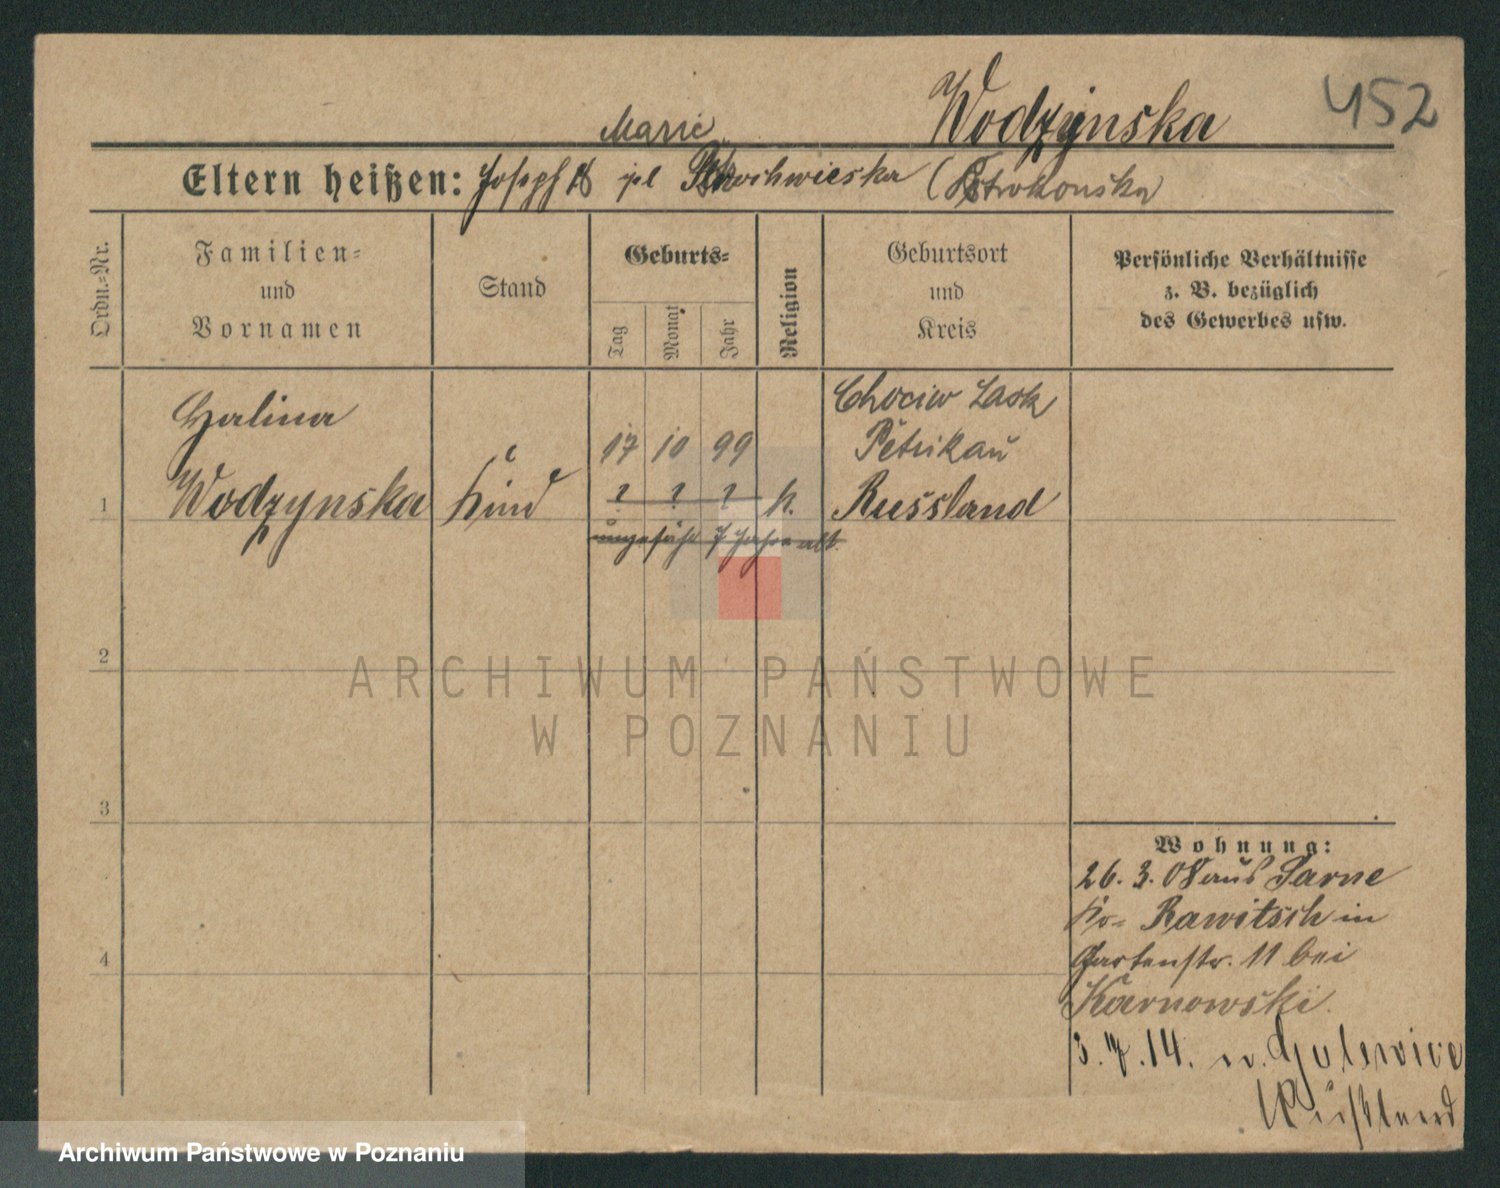 452
Wodzynska
Marie
Eltern heißen: Joseph
(Ostrokonska)
Ordn.-Nr.
Familien-
und
Vornamen
Stand
Geburts-
Tag
Monat
Jahr
Religion
Geburtsort
und
Kreis
Persönliche Verhältnisse
z. B. bezüglich
des Gewerbes usw.
Halina
Chociw Lask
17 10 99
Petrikau
1
Wodzynska
Kind
? ? ?
k.
Russland
ungefähr 7 Jahre alt
2
3
4
Wohnung:
26. 3. 08 aus Sarne
Kr. Rawitsch in
Gartenstr. 11 bei
Karnowski.
3. 7. 14. n. Gulewice
Rußland
ARCHIWUM PAŃSTWOWE
W POZNANIU
Archiwum Państwowe w Poznaniu